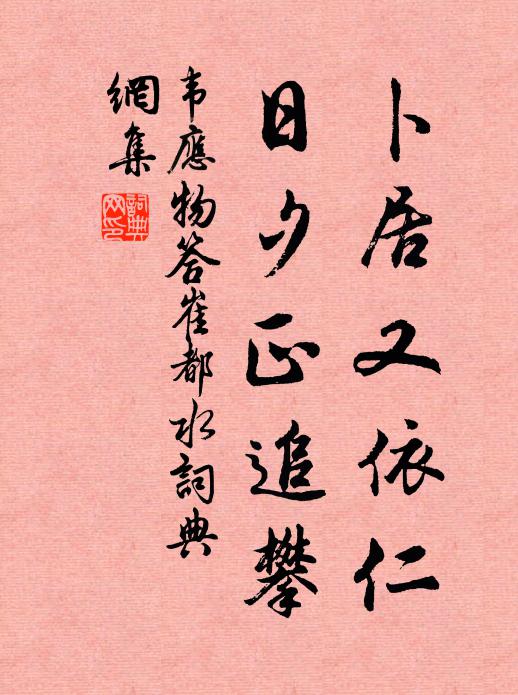 卜居又依仁
日夕正追攀
韦應物答崔都水詞典
網集
詞典
网印